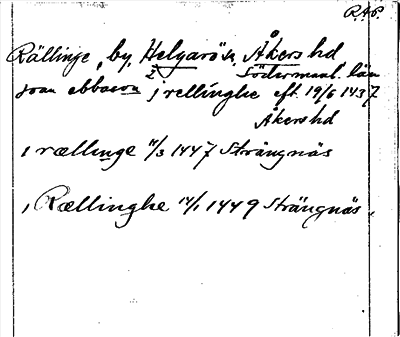 R.A.P.
Rällinge, by, Helgarö sn, Åkers hd
2 Södermanl. län
joan ebbason j rellinghe eft. 19/6 1437
Åkers hd
i rællinge 11/3 1447 Strängnäs
i Rællinghe 14/1 1449 Strängnäs